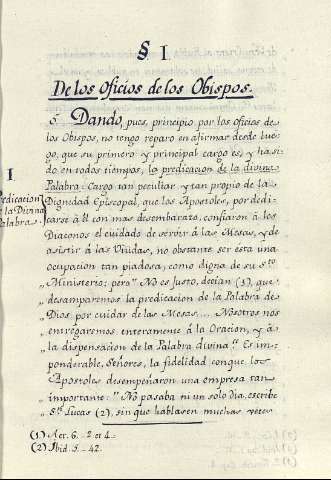 § I.
De los Oficios de los Obispos.
6. Dando, pues, principio por los oficios de
los Obispos, no tengo reparo en afirmar desde lue-
go, que su primero y principal cargo es, y ha si-
do en todos tiempos, la predicacion de la divina
Palabra: Cargo tan peculiar y tan propio de la
Dignidad Episcopal, que los Apostoles, por dedi-
carse á él con mas desembarazo, confiaron á los
Diaconos el cuidado de servir á las Mesas, y de
asistir á las Viudas, no obstante ser esta una
ocupacion tan piadosa, como digna de su Sto
Ministerio; pero " No es justo, decian (1), que
desamparemos la predicacion de la Palabra de
Dios por cuidar de las Mesas.... Nosotros nos
entregaremos enteramente á la Oracion, y á
la dispensacion de la Palabra divina". Es im-
ponderable, Señores, la fidelidad con que los
Apostoles desempeñaron una empresa tan
importante: " No pasaba ni un solo dia, escribe
Sn Lucas (2), sin que hablasen muchas veces
I.
Predicacion
de la Divina
Palabra.
(1) Act. 6. - 2 et 4.
(2) Ibid. 5. - 42.